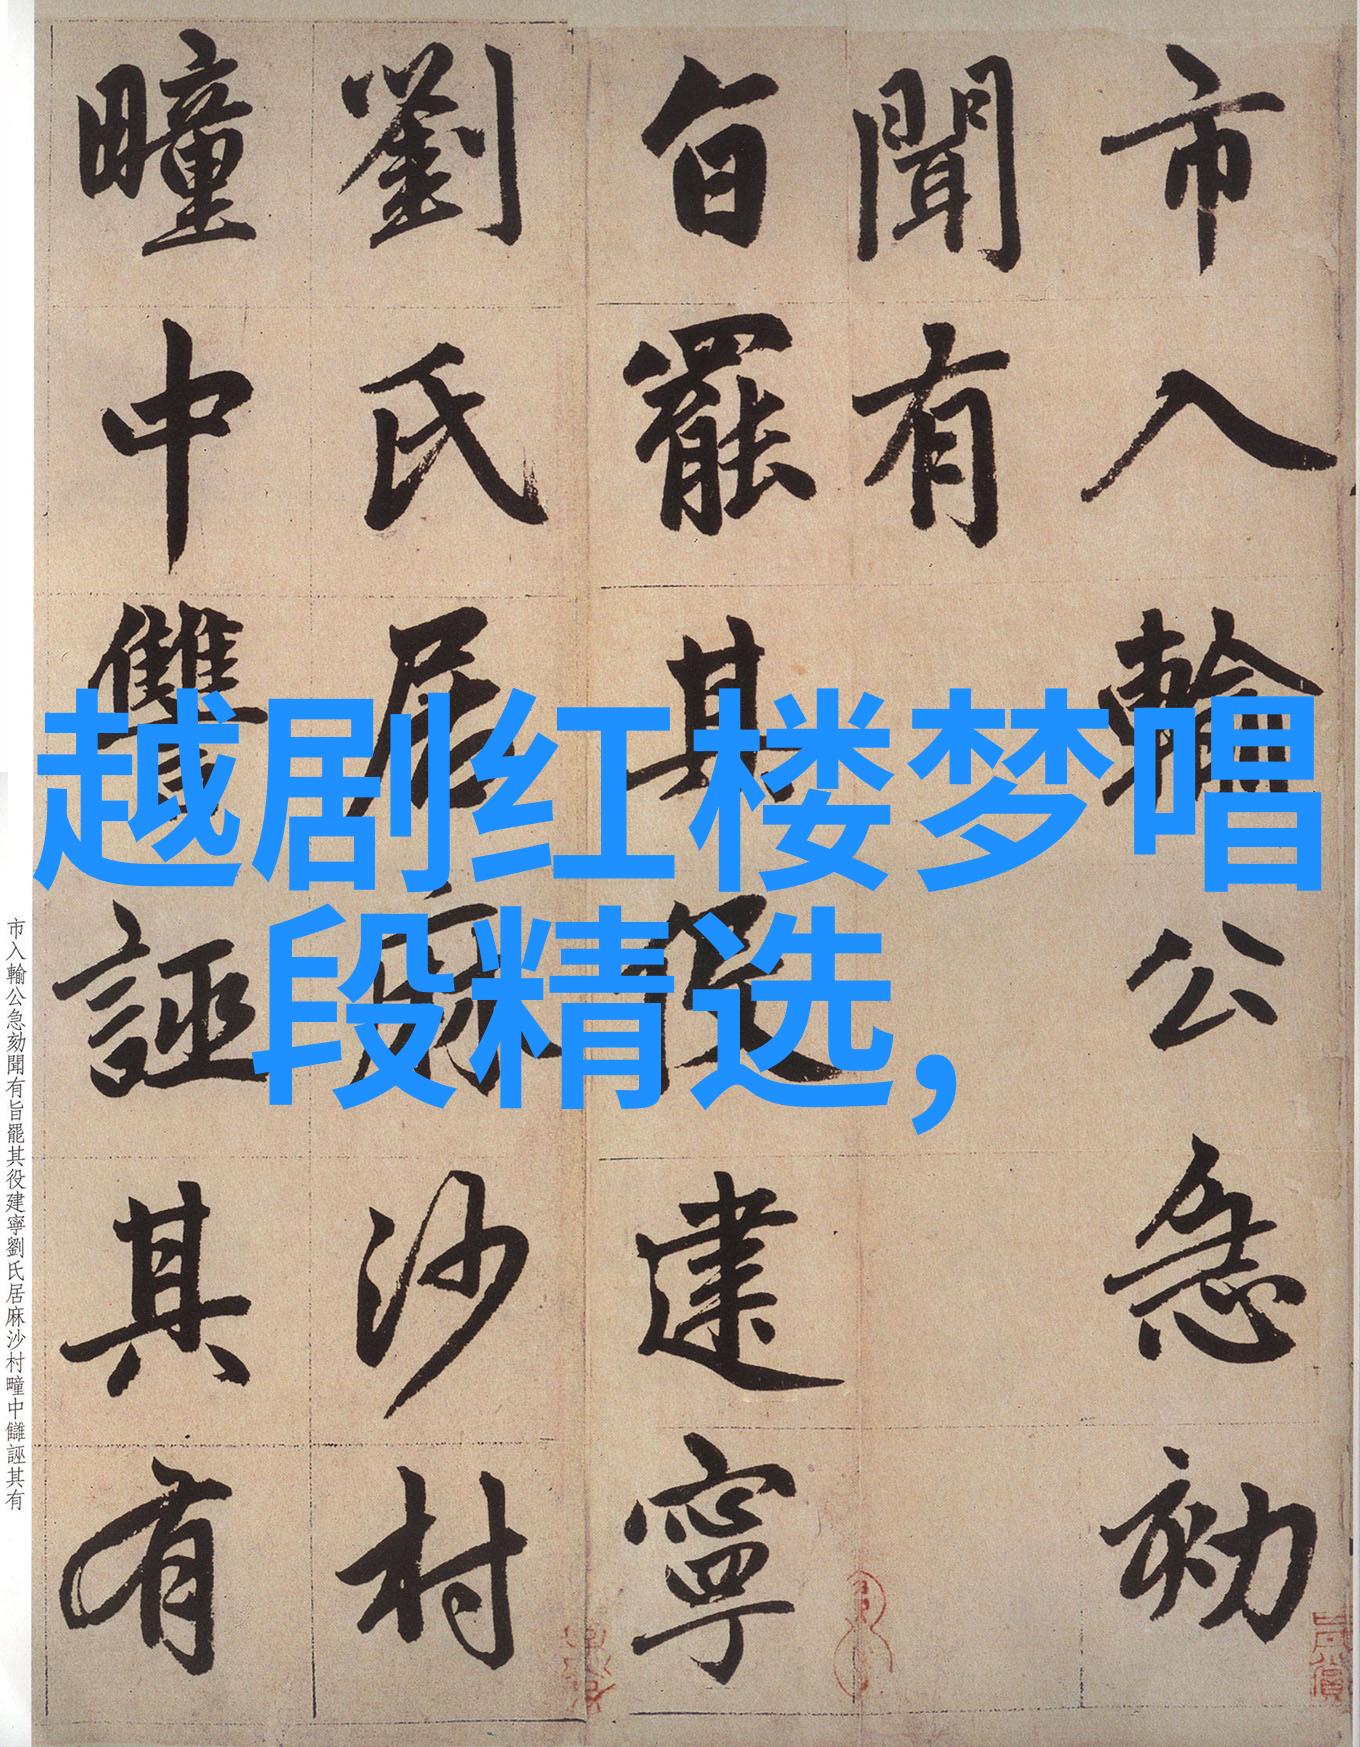 市入輸公急劾
聞有
旨罷其役建寧
劉氏居麻沙村
疃中雔誣其有
越剧红楼梦唱
段精选,
市入輸公急劾聞有旨罷其役建寧劉氏居麻沙村疃中讎誣其有